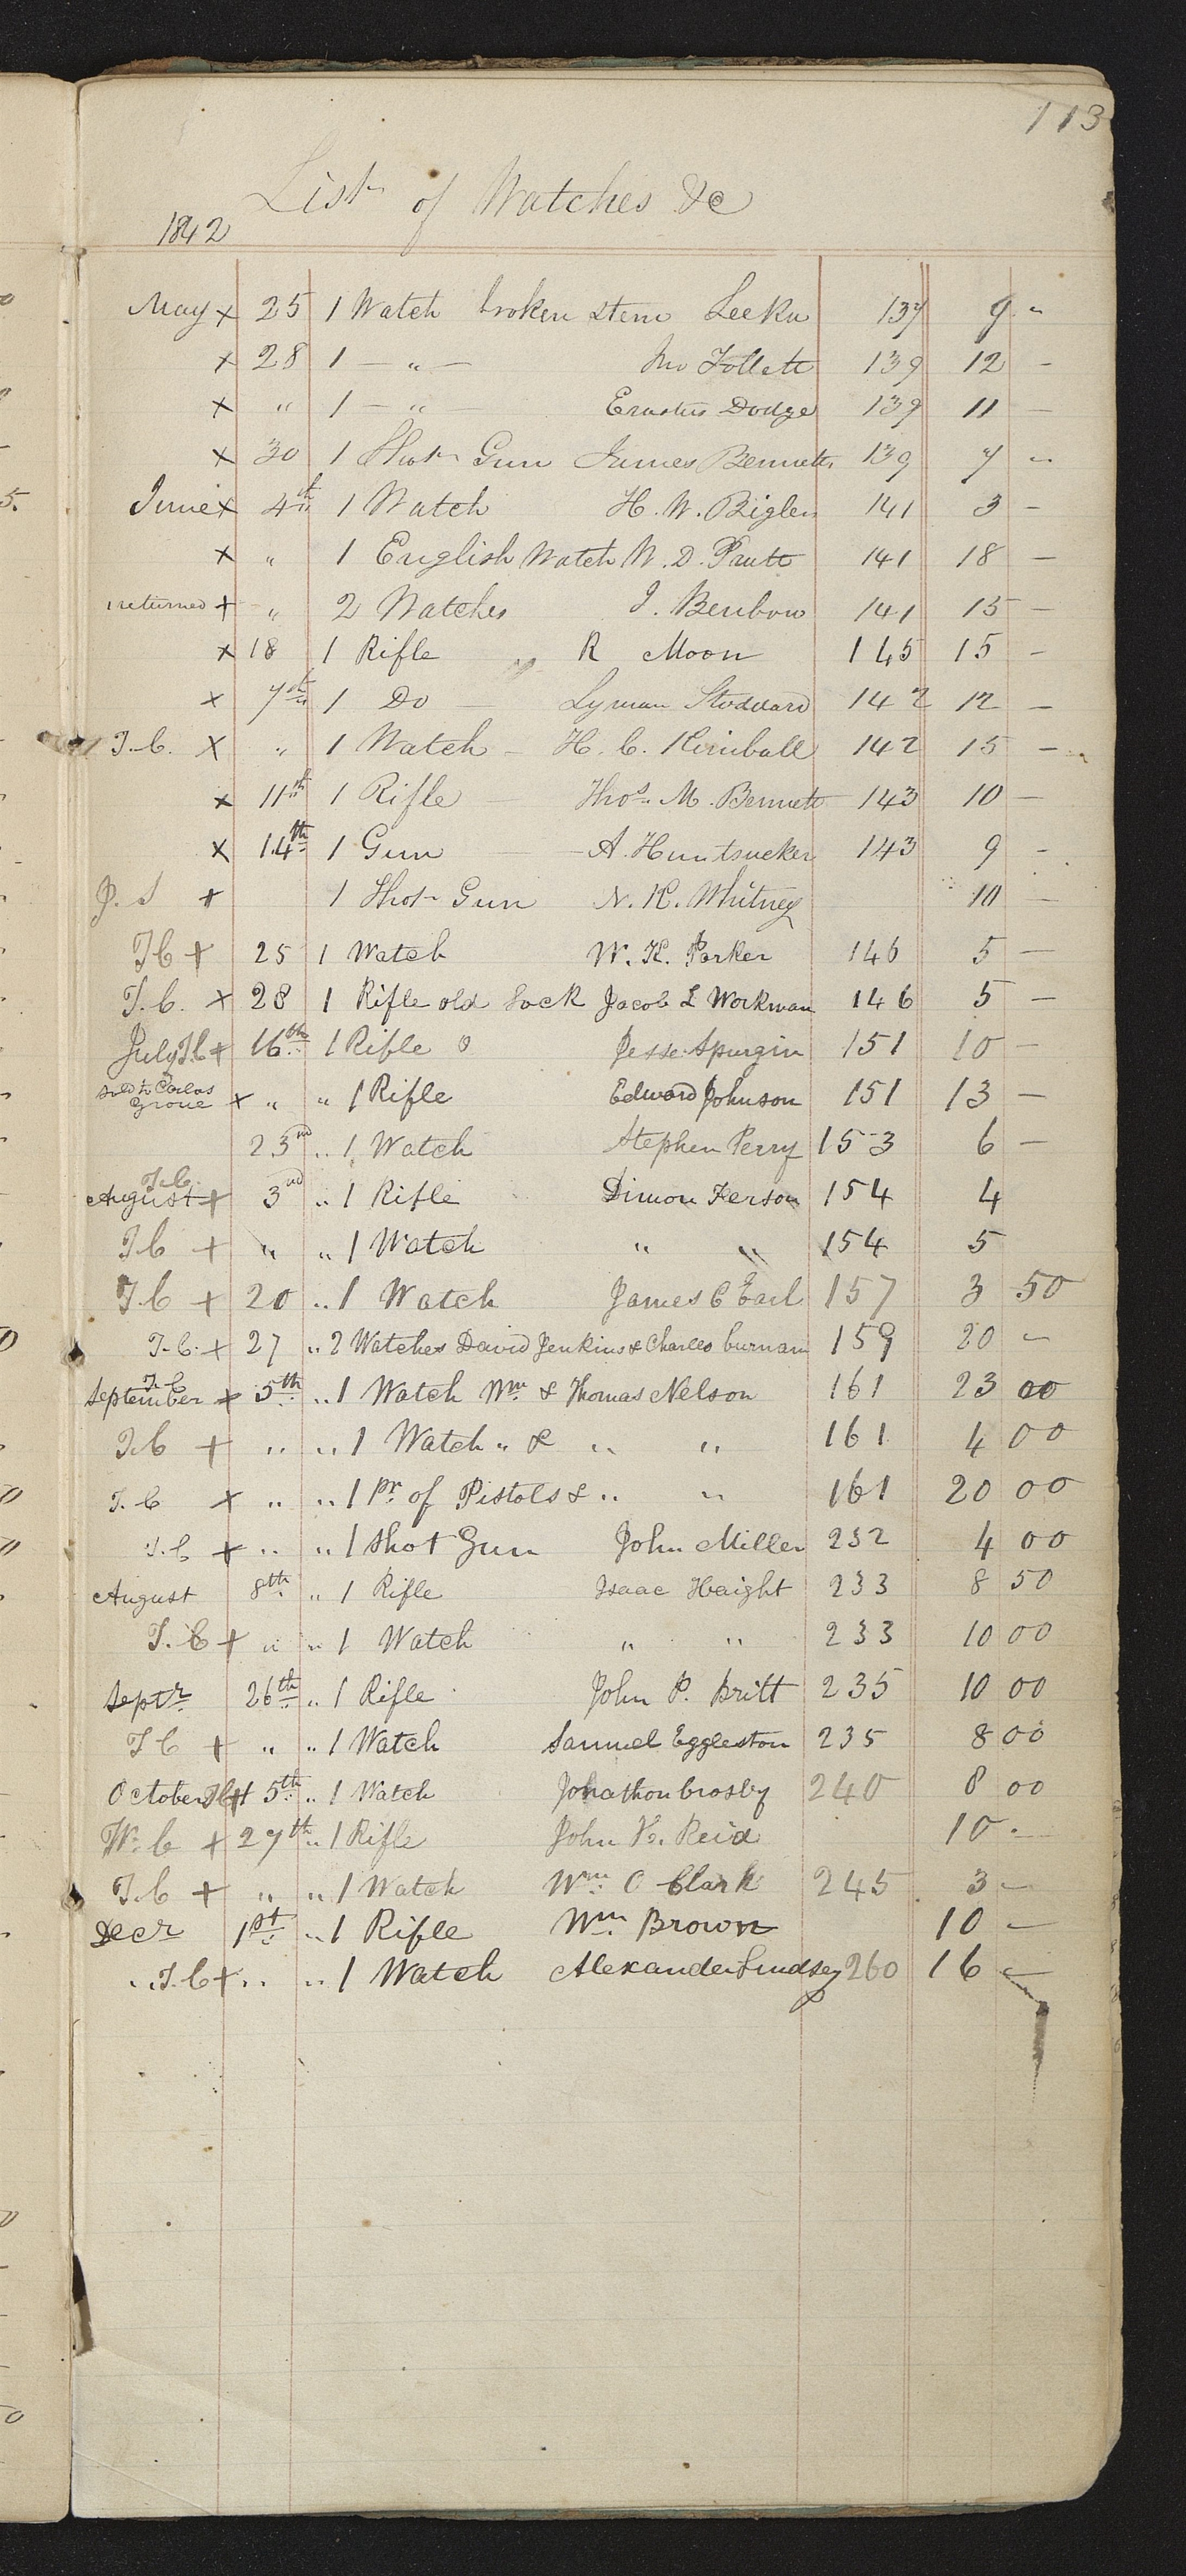 113
List of Watches &c
1842
May x 25 1 Watch broken stem Leeku 137 9 "
x 28 1 — " — Jno Follett 139 12 -
x " 1 — " Erastus Dodge 139 11 —
x 30 1 Shot Gun James Bennett 139 7 -
June x 4th 1 Watch H. W. Bigler 141 3 -
x " 1 English Watch W. D. Pratt 141 18 —
returned + " 2 Watches J. Benbow 141 15 —
x 18 1 Rifle " R Moon 145 15 -
x 7th 1 Do — Lyman Stoddard 142 12 —
T.C. X " 1 Watch - H. C. Kimball 142 15 —
x 11th 1 Rifle — Thos. M. Bennett 143 10 —
x 14th 1 Gun — A. Huntsucker 143 9 -
J. S + 1 Shot Gun N. K. Whitney 10 —
T C + 25 1 Watch W. K. Parker 146 5 —
T. C. x 28 1 Rifle old Lock Jacob L Workman 146 5 —
July T C + 16th 1 Rifle Jesse Spurgin 151 10 —
sold to Carlos Grove x " " 1 Rifle Edward Johnson 151 13 —
23rd " 1 Watch Stephen Perry 153 6 —
T. C.
August + 3rd " 1 Rifle Dimon Ferson 154 4
T C + " " 1 Watch " " 154 5
T. C + 20 " 1 Watch James C Earl 157 3 50
T. C. + 27 " 2 Watches David Jenkins & Charles burnam 159 20 -
T. C
September + 5th " 1 Watch Wm & Thomas Nelson 161 23 00
T. C + " " 1 Watch " & " " 161 4 00
T. C x " " 1 Pr. of Pistols & " " 161 20 00
T. C + " " 1 Shot Gun John Miller 232 4 00
August 8th " 1 Rifle Isaac Haight 233 8 50
T. C + " " 1 Watch " " 233 10 00
Septr 26th " 1 Rifle John P. Britt 235 10 00
T C + " " 1 Watch Samuel Eggleston 235 8 00
October T C + 5th " 1 Watch Johathon Crosby 240 8 00
W. C + 27th " 1 Rifle John K. Reid 10 -
T. C + " " 1 Watch Wm C Clark 245 3 —
Decr 1st " 1 Rifle Wm Brown 10 —
" T. C + " " 1 Watch Alexander Lindsey 260 16 —